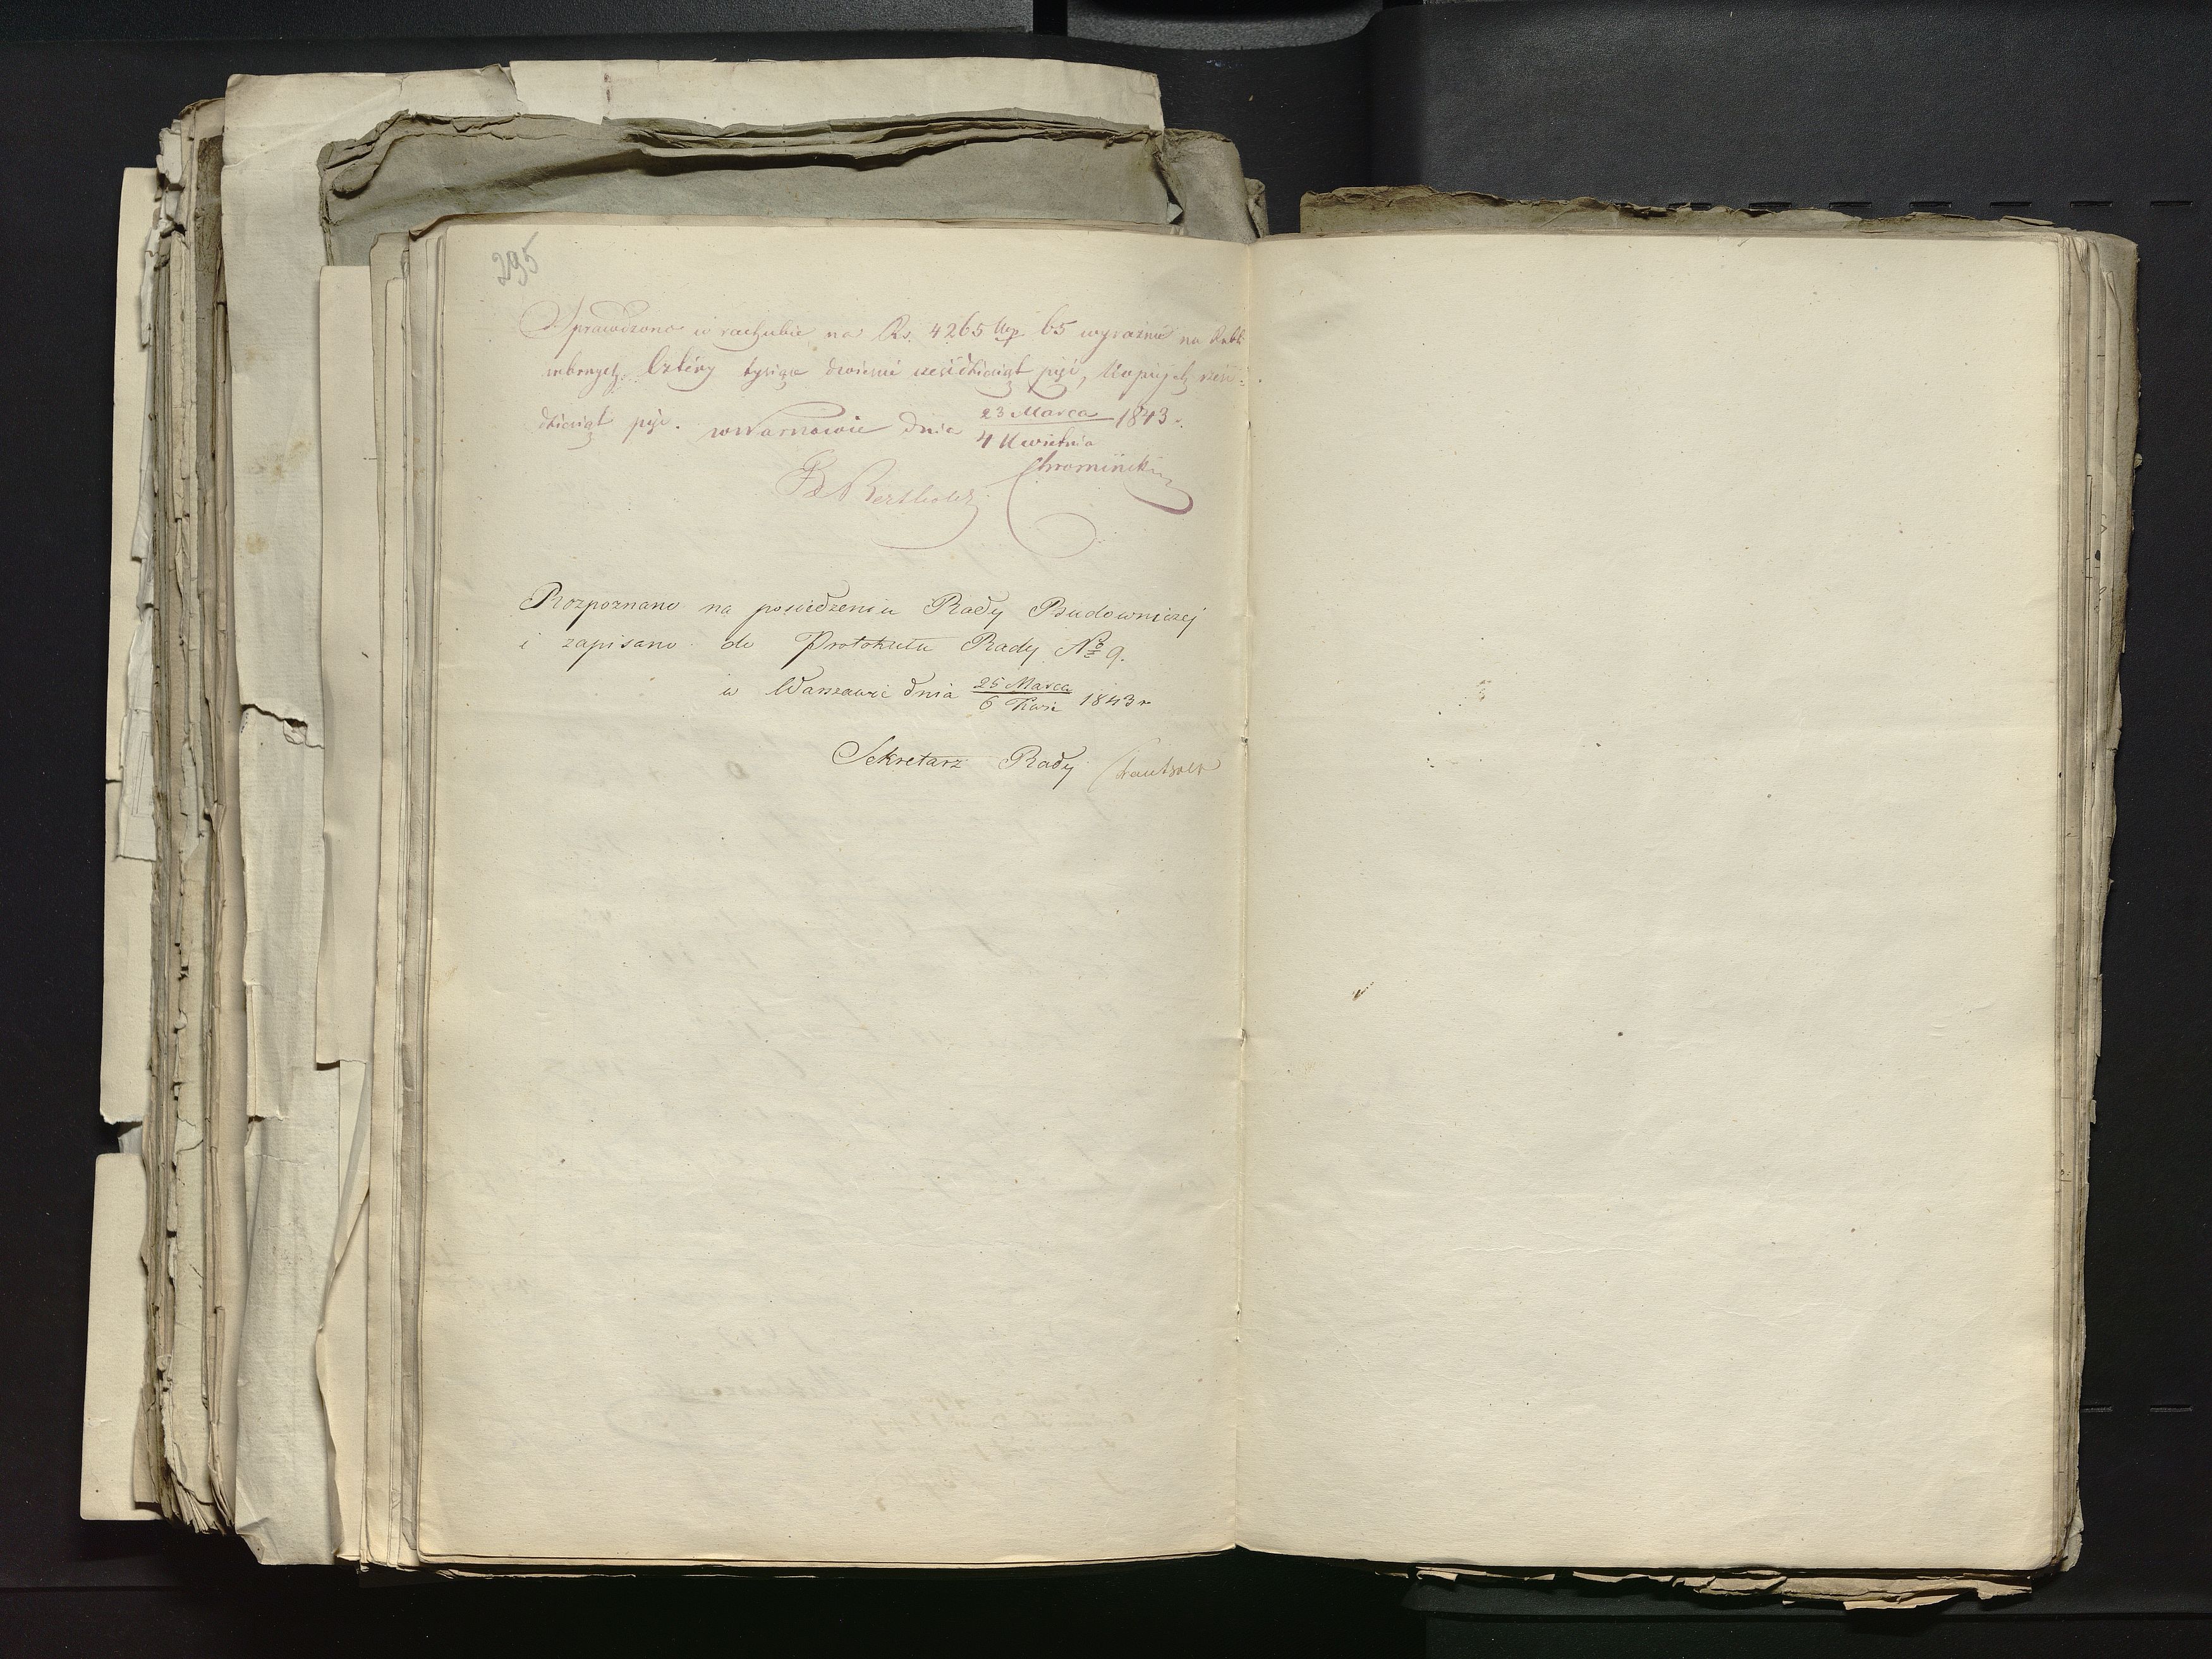 295
Sprawdzono w rachubie na Rs. 4265 kop. 65 wyraźnie na Rubli
srebrnych Cztéry tysiące dwieście sześćdziesiąt pięć, Kopijek sześć=
dziesiąt pięć. w Warszawie dnia 23 Marca / 4 Kwietnia 1843 r.
Chromiński
Bertholdi
Rozpoznano na posiedzeniu Rady Budowniczej
i zapisano do Protokułu Rady № 9.
w Warszawie dnia 25 Marca / 6 Kwie 1843 r
Sekretarz Rady